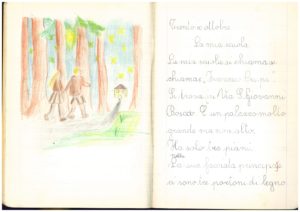 Trentuno ottobre
La mia scuola
La mia scuola si chiama si
chiama
Si trova in Via S. Giovanni
Bosco. È un palazzo molto
grande ma non alto.
Ha solo tre piani.
nella
La sua facciata principa
a sono tre portoni di legno